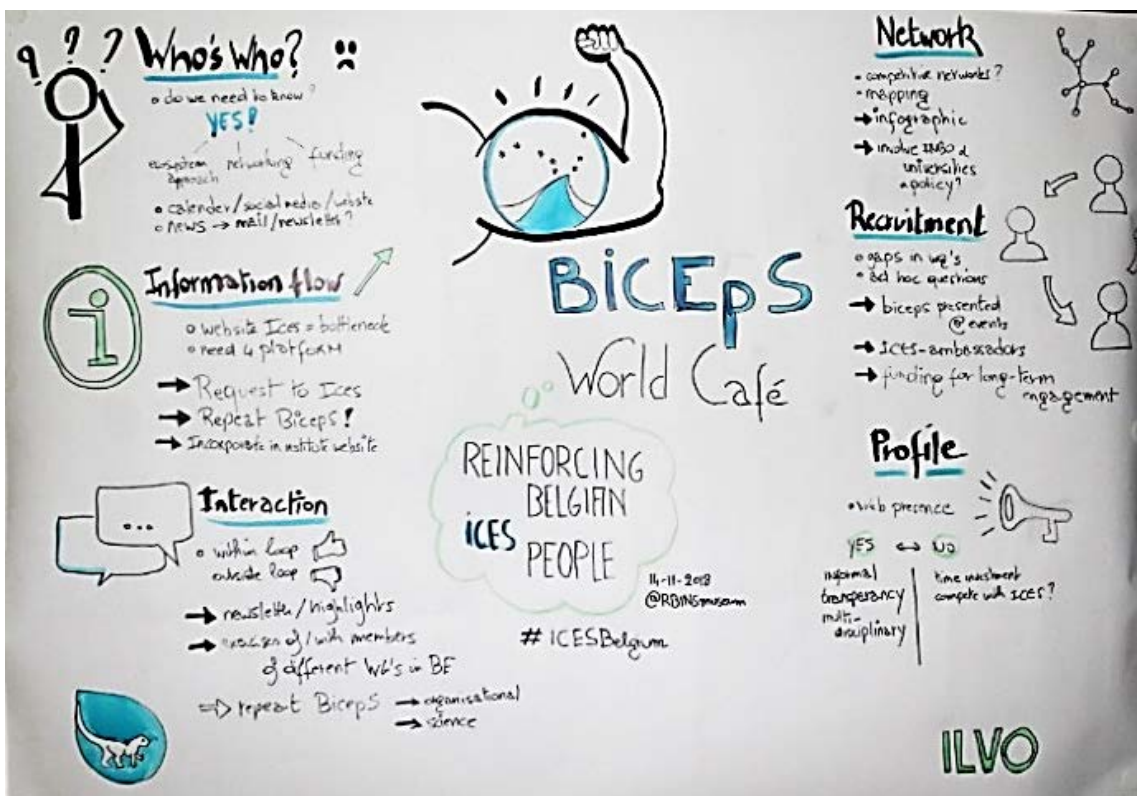 ? ? ?
Who's Who?
• do we need to know?
YES!
ecosystem approach
networking
funding
• calender/social media/website
• news → mail/newsletter?
Information flow
i
• website Ices = bottleneck
• need 4 platform
→ Request to Ices
→ Repeat Biceps!
→ Incorporate in institute website
Interaction
...
• within loop
outside loop
→ newsletter/highlights
→ of/with members
of different WG's in BE
⇒ repeat Biceps → organisational
→ science
BICEpS
World Café
REINFORCING
BELGIAN
ICES
PEOPLE
14-11-2018
@RBINSmuseum
# ICESBelgium
Network
• competitive networks?
• mapping
→ infographic
→ involve &
universities
policy?
Recruitment
• gaps in wg's
• ad hoc questions
→ biceps presented
@ events
→ ICES-ambassadors
→ funding for long-term
engagement
Profile
• web presence
YES ↔ NO
informal
transperancy
multi-
disciplinary
time investment
compete with ICES?
ILVO